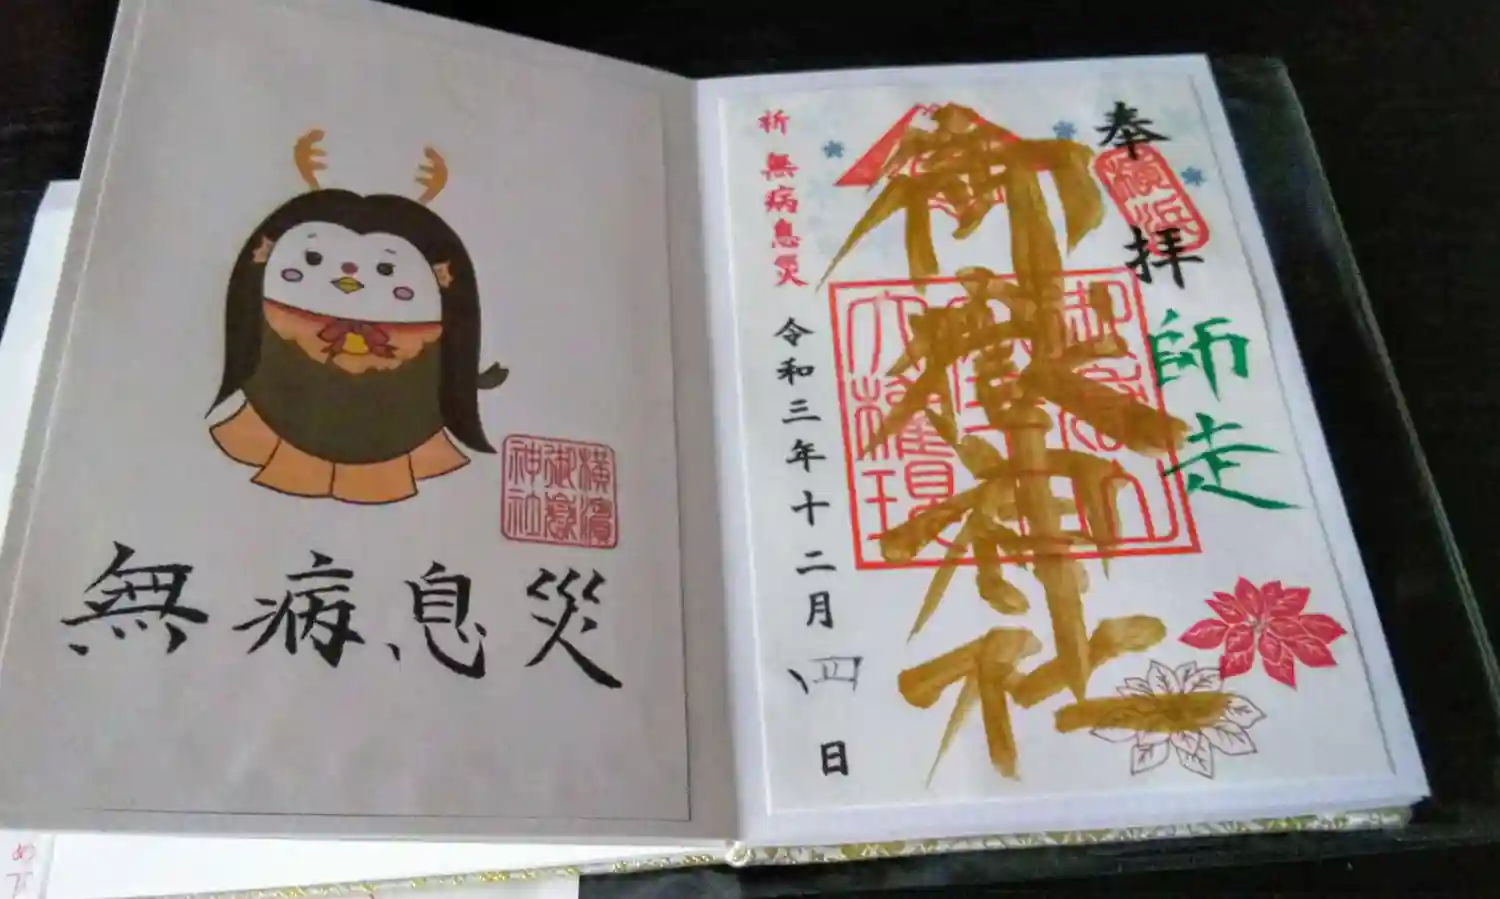 奉拝
横浜
師走
御嶽神社
御嶽山
大権現
祈 無病息災
令和三年十二月四日
横濱
御嶽
神社
無病息災
め